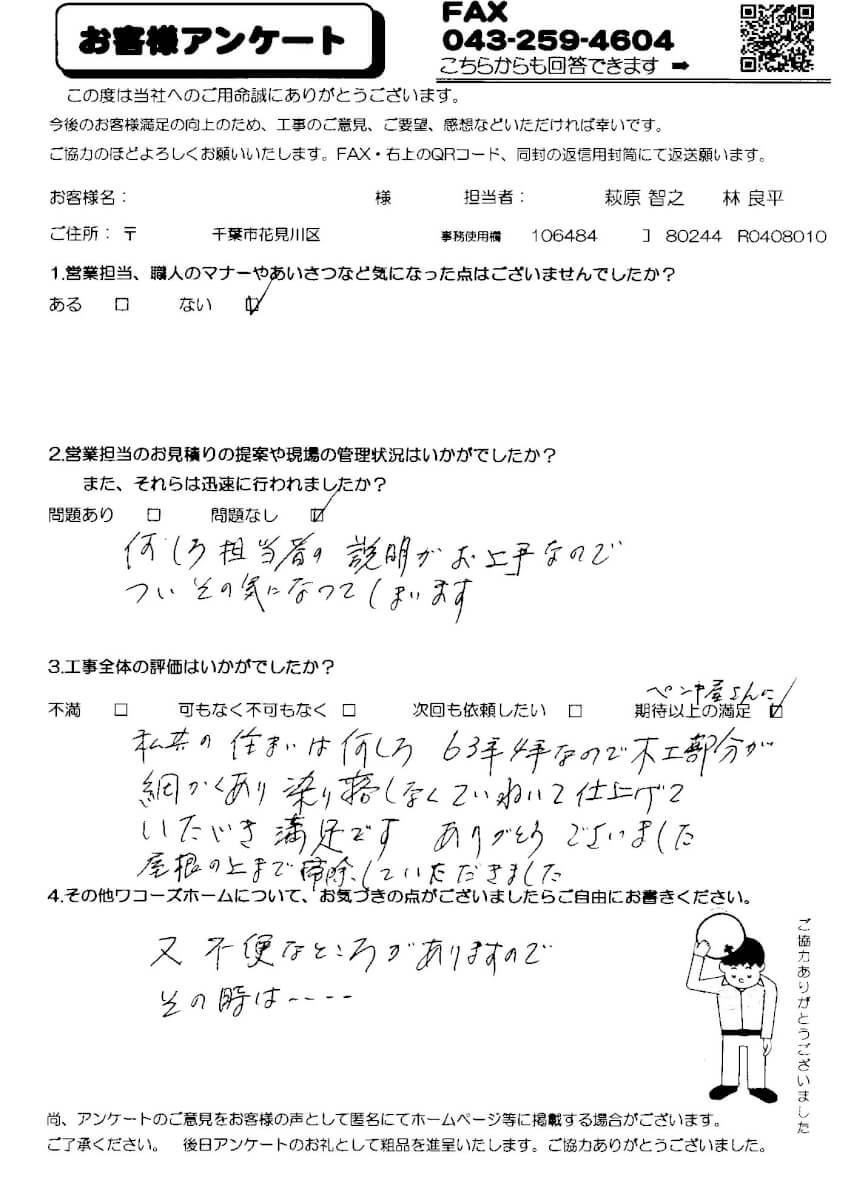 お客様アンケート
FAX
043-259-4604
こちらからも回答できます ➡
この度は当社へのご用命誠にありがとうございます。
今後のお客様満足の向上のため、工事のご意見、ご要望、感想などいただければ幸いです。
ご協力のほどよろしくお願いいたします。FAX・右上のQRコード、同封の返信用封筒にて返送願います。
お客様名： 様 担当者： 萩原 智之 林 良平
ご住所：〒 千葉市花見川区 事務使用欄 106484 ] 80244 R0408010
1.営業担当、職人のマナーやあいさつなど気になった点はございませんでしたか？
ある □ ない ☑
2.営業担当のお見積りの提案や現場の管理状況はいかがでしたか？
また、それらは迅速に行われましたか？
問題あり □ 問題なし ☑
何しろ担当者の説明がお上手なので
ついその気になってしまいます
3.工事全体の評価はいかがでしたか？
ペンキ屋さんに
不満 □ 可もなく不可もなく □ 次回も依頼したい □ 期待以上の満足 ☑
私共の住まいは何しろ 63年4年なので木工部分が
細かくあり 塗り落しなくていねいに仕上げて
いただき 満足です ありがとうございました
屋根の上まで掃除していただきました
4.その他ワコーズホームについて、お気づきの点がございましたらご自由にお書きください。
又不便なところがありますので
その時は----
ご協力ありがとうございました
尚、アンケートのご意見をお客様の声として匿名にてホームページ等に掲載する場合がございます。
ご了承ください。 後日アンケートのお礼として粗品を進呈いたします。ご協力ありがとうございました。